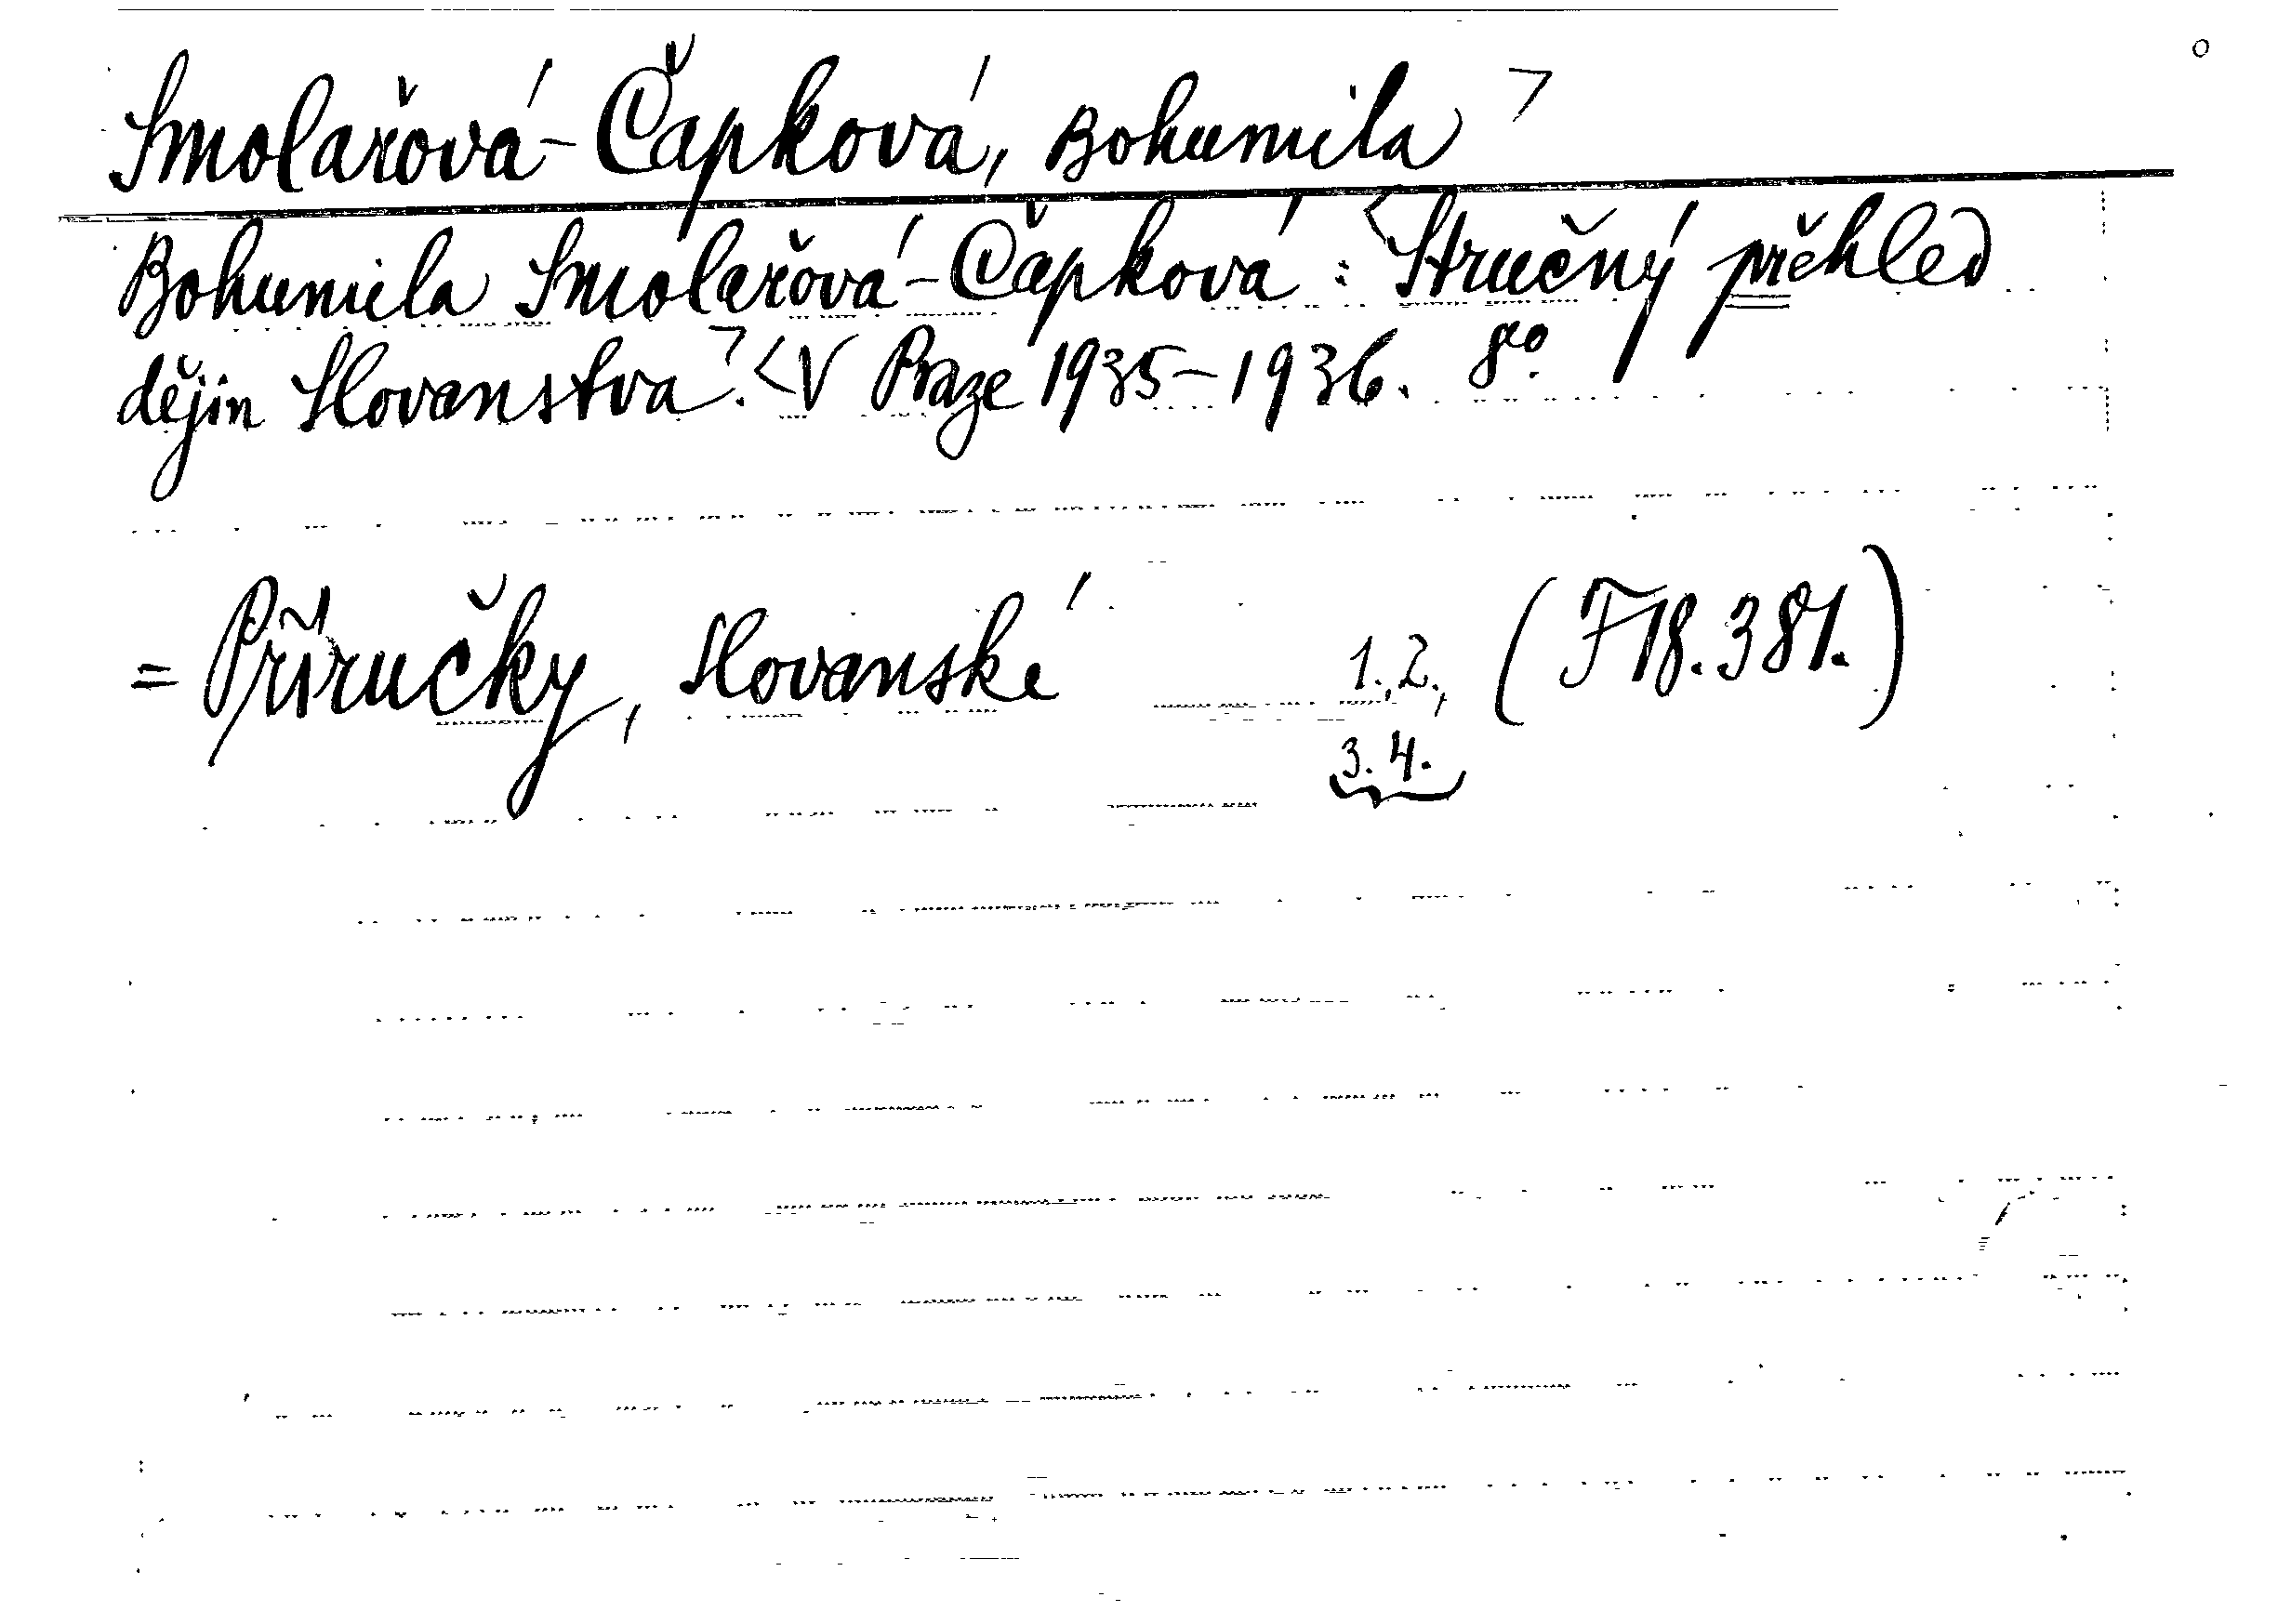 Smolařová-Čapková, Bohumila>
Bohumila Smolařová-Čapková : <Stručný přehled
dějin Slovanstva>. <V Praze 1935-1936. 8o.
= Příručky, Slovanské 1.,2., (F 18.381.)
3. 4.